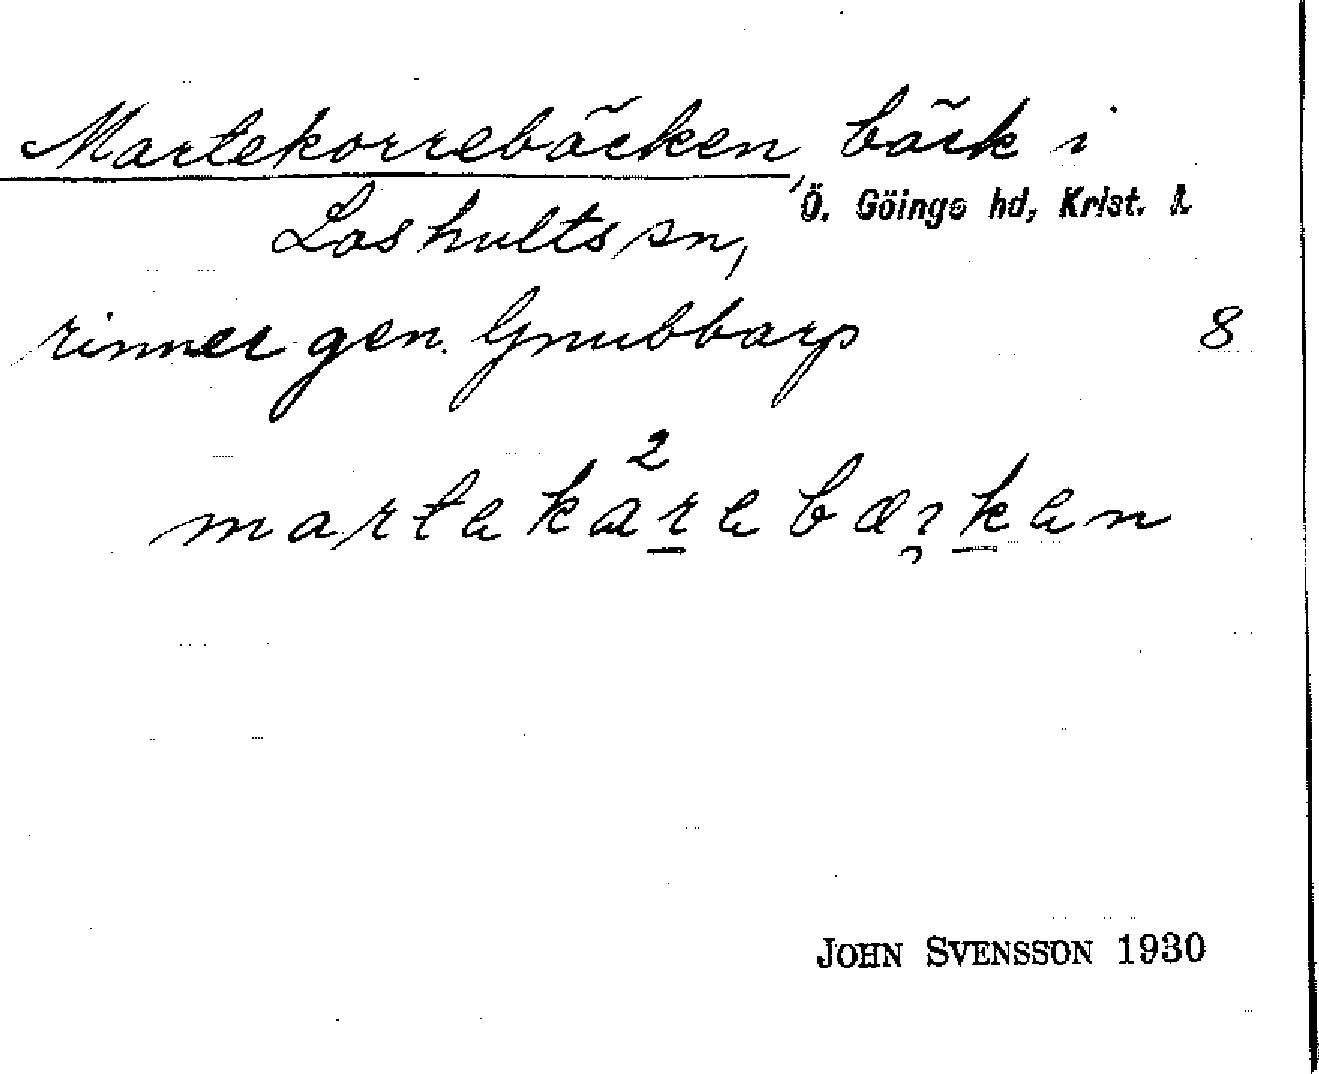 Martekorrebäcken, bäck i
Loshults sn, Ö. Göinge hd, Krist. l.
rinner gen. Gnubbarp 8
2
JOHN SVENSSON 1930